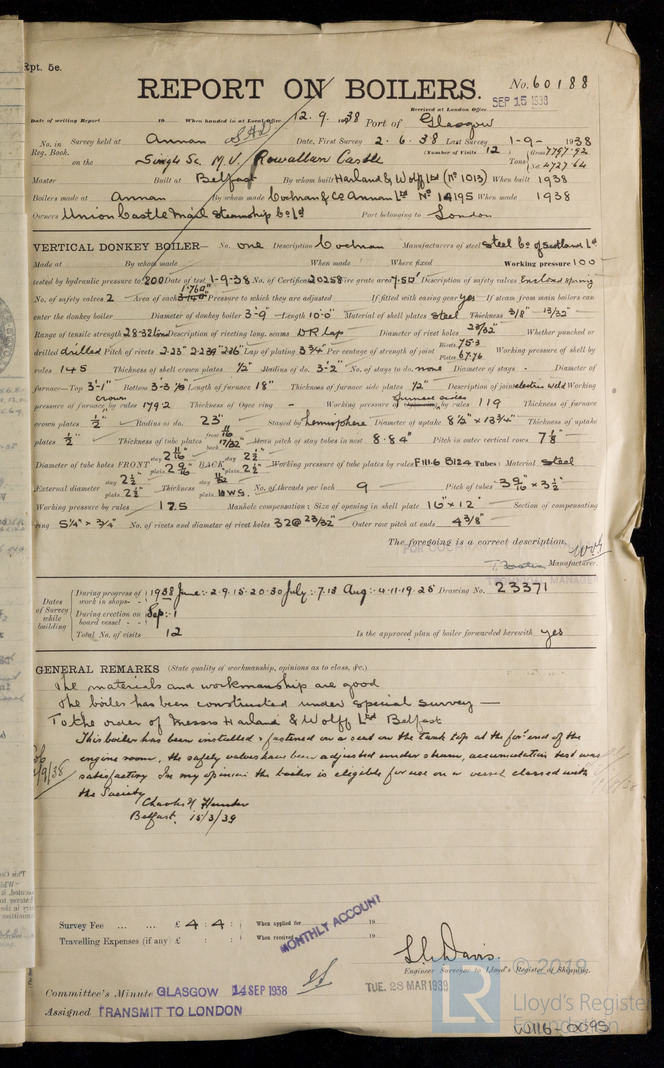 Rpt. 5e.
REPORT ON BOILERS.
No. 60188
Received at London Office
SEP 15 1938
Date of writing Report 19 When handed in at Local Office 12.9.1938 Port of Glasgow
No. in Reg. Book. Survey held at Annan Date, First Survey 2.6.38 Last Survey 1-9-1938
(Number of Visits 12
on the Single Sc. M.V. Rowallan Castle Tons Gross 7797.92 Net 4727.64
Master Built at Belfast By whom built Harland & Wolff Ltd (No 1013) When built 1938
Boilers made at Annan By whom made Cochran & Co Annan Ltd No 14195 When made 1938
Owners Union Castle Mail Steamship Co Ld Port belonging to London
VERTICAL DONKEY BOILER— No. one Description Cochran Manufacturers of steel Steel Co of Scotland Ld
Made at By whom made When made Where fixed Working pressure 100
tested by hydraulic pressure to 200 Date of test 1-9-38 No. of Certificate 20258 Fire grate area 7.50 Description of safety valves Enclosed spring
No. of safety valves 2 Area of each 1.760" Pressure to which they are adjusted If fitted with easing gear yes If steam from main boilers can
enter the donkey boiler Diameter of donkey boiler 3'-9" Length 10'0" Material of shell plates steel Thickness 3/8" - 13/32"
Range of tensile strength 28-32 tons Description of riveting long. seams DR Lap Diameter of rivet holes 23/32" Whether punched or
drilled drilled Pitch of rivets 2.23" 2.239" 2.26" Lap of plating 3 3/4" Per centage of strength of joint Rivets 75.3 Plates 67.76 Working pressure of shell by
rules 145 Thickness of shell crown plates 1/2" Radius of do. 3'-2" No. of stays to do. none Diameter of stays - Diameter of
furnace—Top 3'-1" Bottom 3-3 1/8 Length of furnace 18" Thickness of furnace side plates 1/2" Description of joint electric weld Working
pressure of furnace crown by rules 179.2 Thickness of Ogee ring - Working pressure of furnace sides by rules 119 Thickness of furnace
crown plates 1/2" Radius do. 23" Stayed by hemisphere Diameter of uptake 8 1/2" x 13 3/4" Thickness of uptake
plates 1/2" Thickness of tube plates front 11/16 back 17/32" Mean pitch of stay tubes in nest 8.84" Pitch in outer vertical rows 7 1/8"
Diameter of tube holes FRONT stay 2 11/16" plain 2 9/16" BACK stay 2 1/2" plain 2 1/2" Working pressure of tube plates by rules F111.6 B124 Tubes: Material steel
External diameter stay 2 1/2" plain 2 1/2" Thickness 10 WS. No. of threads per inch 9 Pitch of tubes 3 9/16" x 3 1/2"
Working pressure by rules 175 Manhole compensation: Size of opening in shell plate 16" x 12" Section of compensating
ring 5 1/4" x 3/4" No. of rivets and diameter of rivet holes 32 @ 23/32" Outer row pitch at ends 4 3/8"
The foregoing is a correct description,
Manufacturer.
Dates of Survey while building
During progress of work in shops - - 1938 June:- 2.9.15.20.30 July:- 7.13 Aug:- 4.11.19.25 Drawing No. 23371
During erection on board vessel - - - Sep:- 1
Total No. of visits 12 Is the approved plan of boiler forwarded herewith yes
GENERAL REMARKS (State quality of workmanship, opinions as to class, &c.)
The materials and workmanship are good
The boiler has been constructed under special survey —
To the order of Messrs Harland & Wolff Ltd Belfast
This boiler has been installed & fastened on a seat on the tank top at the ford end of the
engine room, the safety valves have been adjusted under steam, accumulation test was
satisfactory In my opinion the boiler is eligible for use on a vessel classed with
the Society
Charles H. Hunter
Belfast. 15/3/39
Survey Fee ... ... £ 4 : 4 : When applied for 19
Travelling Expenses (if any) £ : : When received 19
MONTHLY ACCOUNT
L.C. Davis.
Engineer Surveyor to Lloyd's Register of Shipping.
Committee's Minute GLASGOW 14 SEP 1938
TUE. 28 MAR 1939
Assigned TRANSMIT TO LONDON
© 2019
LR
Lloyd's Register
Foundation
W116-0095